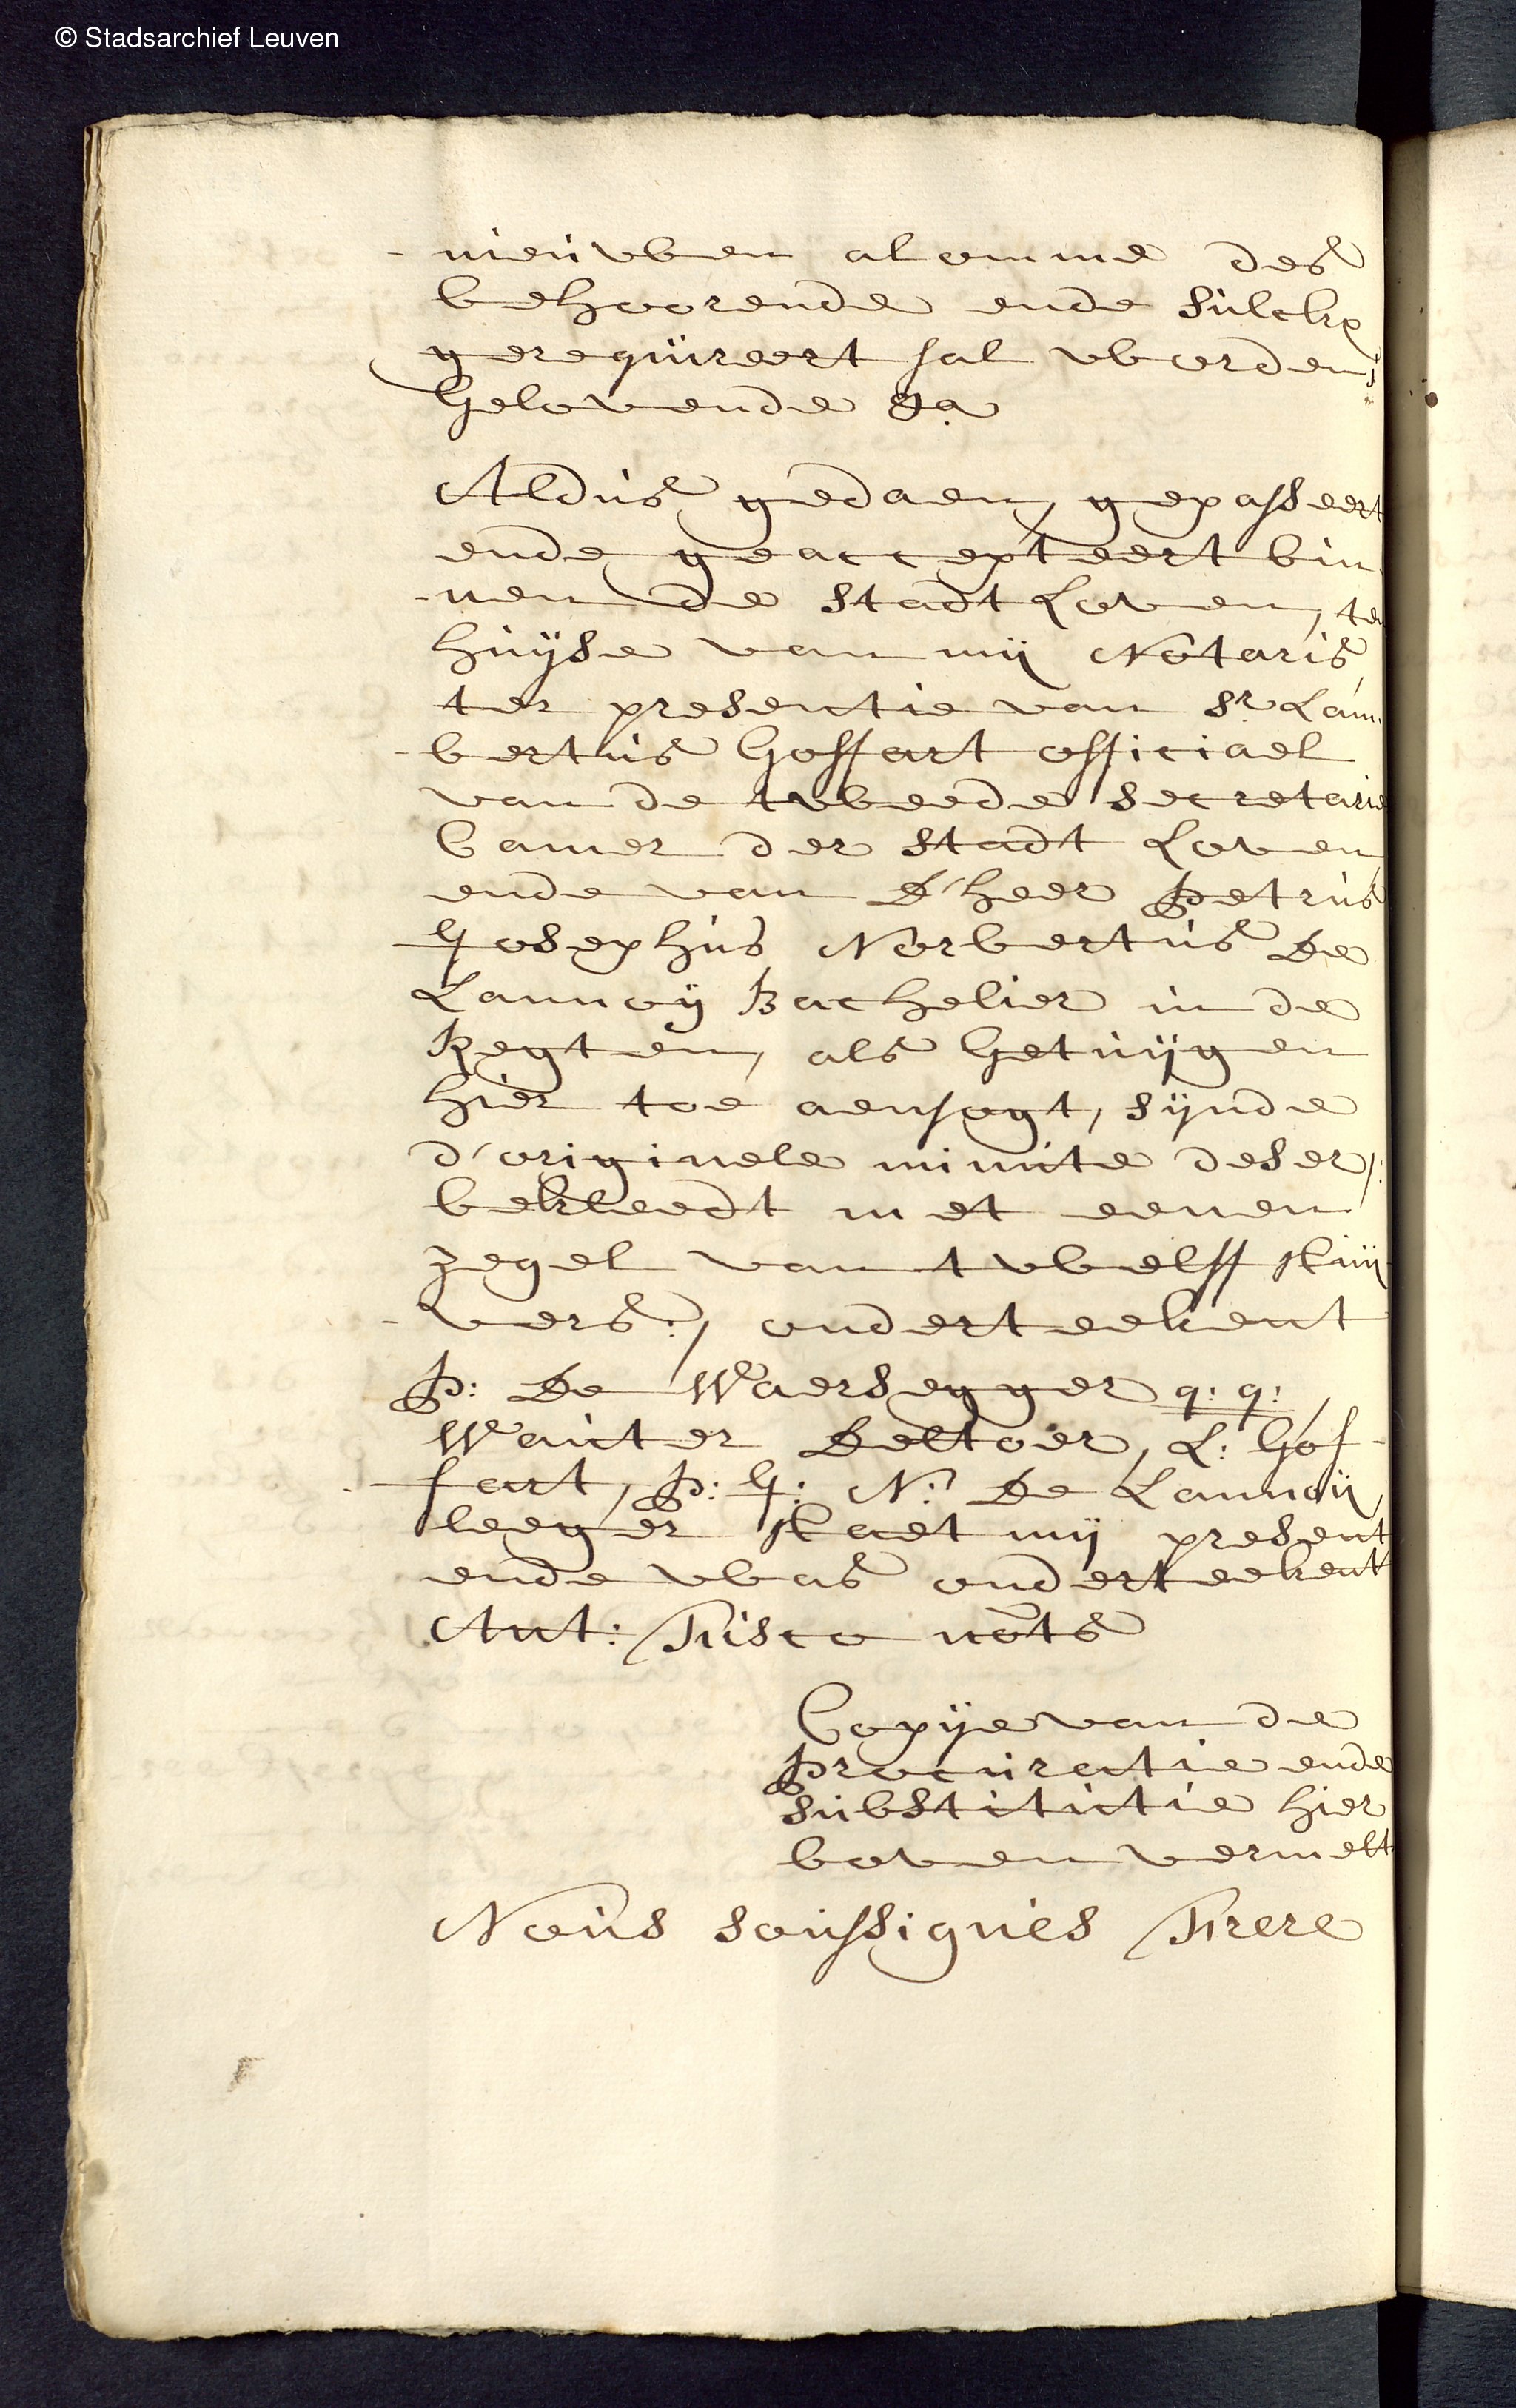 © Stadsarchief Leuven
-nieuwen alomme des
behoorende ende sulckx
gerequireert sal worden
Gelovende &a
Aldus gedaen, gepasseert
ende geaccepteert bin
-nen de stadt Loven, ten
huijse van mij Notaris
ter presentie van Sr. Lam-
-bertus Goffart officiael
van de tweede secretarie
Camer der stadt Loven
ende van D'heer Petrus
Josephus Norbertus De
Lannoy Bachelier in de
Regten, als Getuijgen
hier toe aensogt, sijnde
d'originele minute deser,
bekleedt met eenen
zegel van twelff stuij
-vers, onderteekent
P: De Waersegger q: q:,
Wauter Deltoer, L: Gof-
-fart, P: J: N: De Lannoij,
leeger staet mij present
ende was onderteekent
Ant: Fisco nots
Copije van de
Procuratie ende
substitutie hier
boven vermelt
Nous soussignés Frere